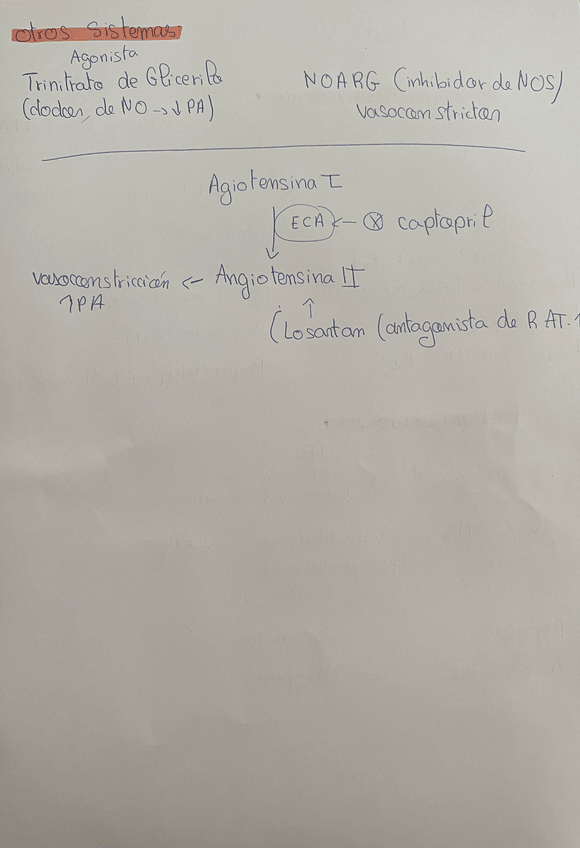 otros sistemas
Agonista
Trinitrato de Glicerilo
(dodor, de NO → ↓ PA)
NOARG (inhibidor de NOS)
vasoconstrictor
Agiotensina I
ECA ← ⊗ captopril
vasoconstricción ← Angiotensina II
↑PA
↑
(Losartan (antagonista de R AT-1